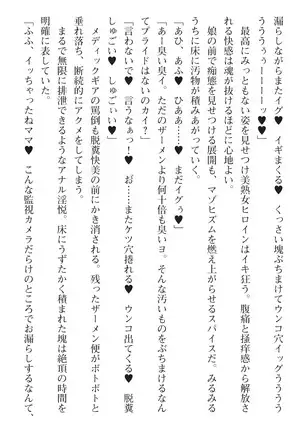 漏らしながらまたイグ♥　イギまくる♥　くっさい塊ぶちまけてウンコ穴イッグうううう
うううぅぅーーーーッッ♥」
最高にみっともない姿を見せつけ美熟女ヒロインはイキ狂う。腹痛と掻痒感から解放さ
れる快感は魂が抜けるほどに心地よい。
娘の前で痴態を見せつける展開も、マゾヒズムを燃え上がらせるスパイスだ。みるみる
うちに床に汚物が積みあがっていく。
「あひ、あふ♥　ひああ……♥　まだイグぅ♥」
「あー臭い臭イ。ただのザーメンより何十倍も臭いヨ。そんな汚いものをぶちまけるなん
てプライドはないのカイ？」
「言わないで♥　言うなぁっ！♥　お……またケツ穴捲れる♥　ウンコ出てくる♥　脱糞
しゅごい♥　しゅごいい♥」
メディックギアの罵倒も脱糞快美の前にかき消される。残ったザーメン便がボトボトと
垂れ落ち、断続的にアクメをしてしまう。
まるで無限に排泄できるようなアナル淫悦。床にうずたかく積まれた塊は絶頂の時間を
明確に表していた。
「ふふ、イッちゃったねママ♥　こんな監視カメラだらけのところでお漏らしするなんて、